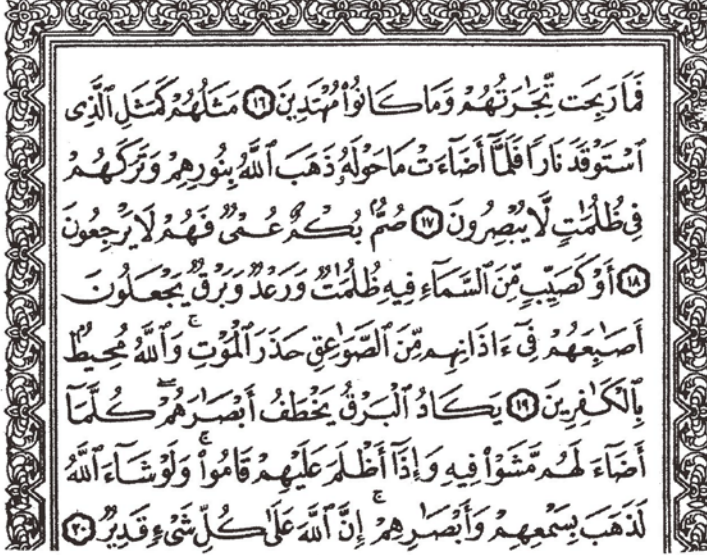 فَمَا رَبِحَت تِّجَٰرَتُهُمْ وَمَا كَانُوا۟ مُهْتَدِينَ ١٦ مَثَلُهُمْ كَمَثَلِ ٱلَّذِى
ٱسْتَوْقَدَ نَارًا فَلَمَّآ أَضَآءَتْ مَا حَوْلَهُۥ ذَهَبَ ٱللَّهُ بِنُورِهِمْ وَتَرَكَهُمْ
فِى ظُلُمَٰتٍ لَّا يُبْصِرُونَ ١٧ صُمٌّۢ بُكْمٌ عُمْىٌ فَهُمْ لَا يَرْجِعُونَ
١٨ أَوْ كَصَيِّبٍ مِّنَ ٱلسَّمَآءِ فِيهِ ظُلُمَٰتٌ وَرَعْدٌ وَبَرْقٌ يَجْعَلُونَ
أَصَٰبِعَهُمْ فِىٓ ءَاذَانِهِم مِّنَ ٱلصَّوَٰعِقِ حَذَرَ ٱلْمَوْتِ ۚ وَٱللَّهُ مُحِيطٌۢ
بِٱلْكَٰفِرِينَ ١٩ يَكَادُ ٱلْبَرْقُ يَخْطَفُ أَبْصَٰرَهُمْ ۖ كُلَّمَآ
أَضَآءَ لَهُم مَّشَوْا۟ فِيهِ وَإِذَآ أَظْلَمَ عَلَيْهِمْ قَامُوا۟ ۚ وَلَوْ شَآءَ ٱللَّهُ
لَذَهَبَ بِسَمْعِهِمْ وَأَبْصَٰرِهِمْ ۚ إِنَّ ٱللَّهَ عَلَىٰ كُلِّ شَىْءٍ قَدِيرٌ ٢٠